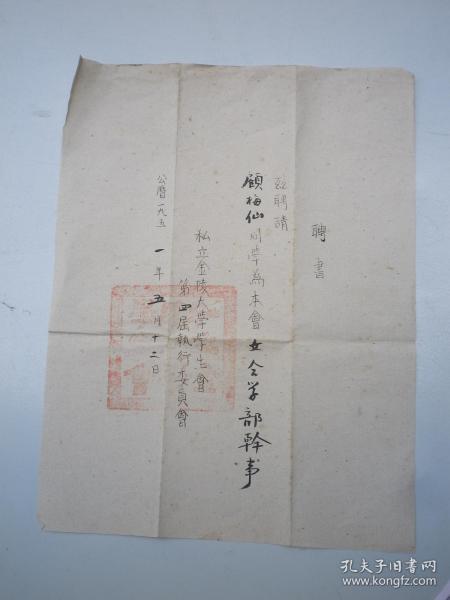 聘書
茲聘請
顧梅仙同學為本會女仝学部幹事
私立金陵大學學生會
第四屆執行委員會
公曆一九五一年五月十二日
孔夫子旧书网
www.kongfz.com